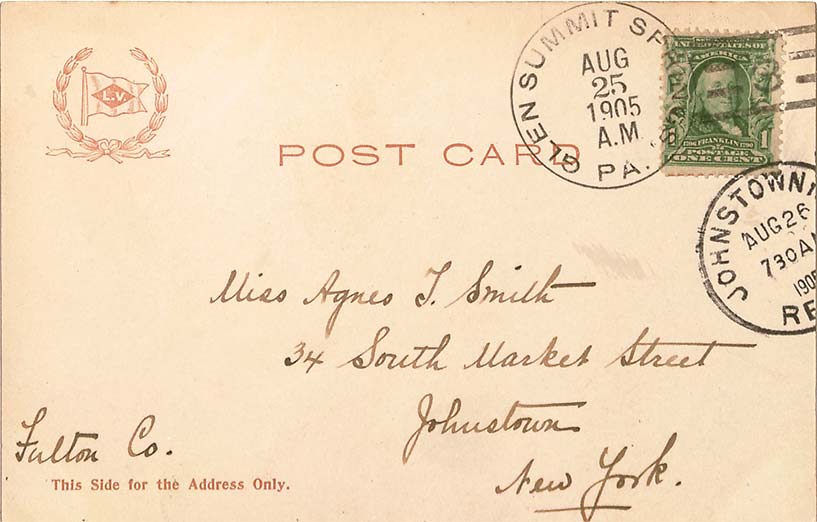 L.V.
POST CARD
GLEN SUMMIT SPRINGS
AUG
25
1905
A.M
PA.
UNITED STATES OF
AMERICA
1706 FRANKLIN 1790
POSTAGE
ONE CENT
1
JOHNSTOWN
AUG 26
730 AM
1905
RE
Miss Agnes T. Smith
34 South Market Street
Johnstown
New York.
Fulton Co.
This Side for the Address Only.